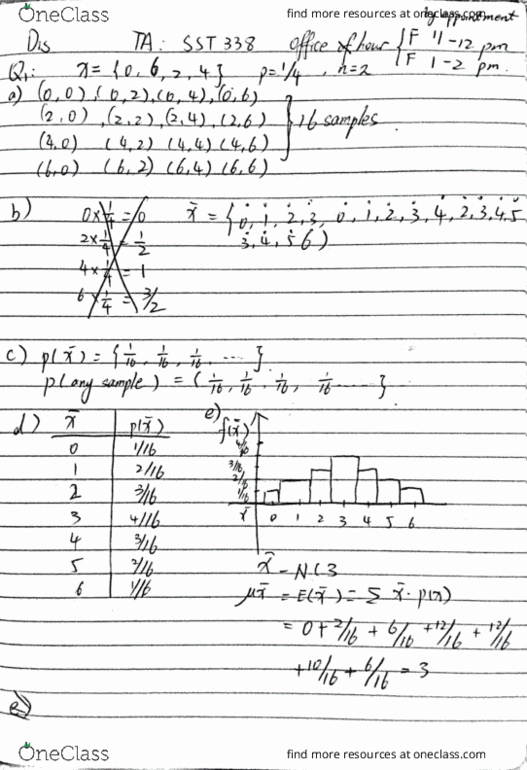 OneClass
find more resources at oneclass.com
by appointment
Dis TA: SST 338 office of hour { F 11-12 pm
F 1-2 pm.
Q1: x = {0, 6, 2, 4} p=1/4, n=2
a) (0,0), (0,2), (0,4), (0,6)
(2,0), (2,2), (2,4), (2,6)
(4,0) (4,2) (4,4) (4,6)
(6,0) (6,2) (6,4) (6,6)
} 16 samples.
b) 0×1/4 = 0
2×1/4 = 1/2
4×1/4 = 1
6×1/4 = 3/2
x̄ = {0, 1, 2, 3, 0, 1, 2, 3, 4, 2, 3, 4, 5
3, 4, 5 6)
c) p(x̄) = {1/16, 1/16, 1/16 .... }
p(any sample) = (1/16, 1/16, 1/16, 1/16 ...... }
d) x̄ p(x̄)
0 1/16
1 2/16
2 3/16
3 4/16
4 3/16
5 2/16
6 1/16
e) f(x̄)
3/16
2/16
1/16
x̄ 0 1 2 3 4 5 6
x̄ - N(3
μx̄ = E(x̄) = Σ x̄ · p(x)
= 0 + 2/16 + 6/16 + 12/16 + 12/16
+ 10/16 + 6/16 = 3
e)
OneClass
find more resources at oneclass.com